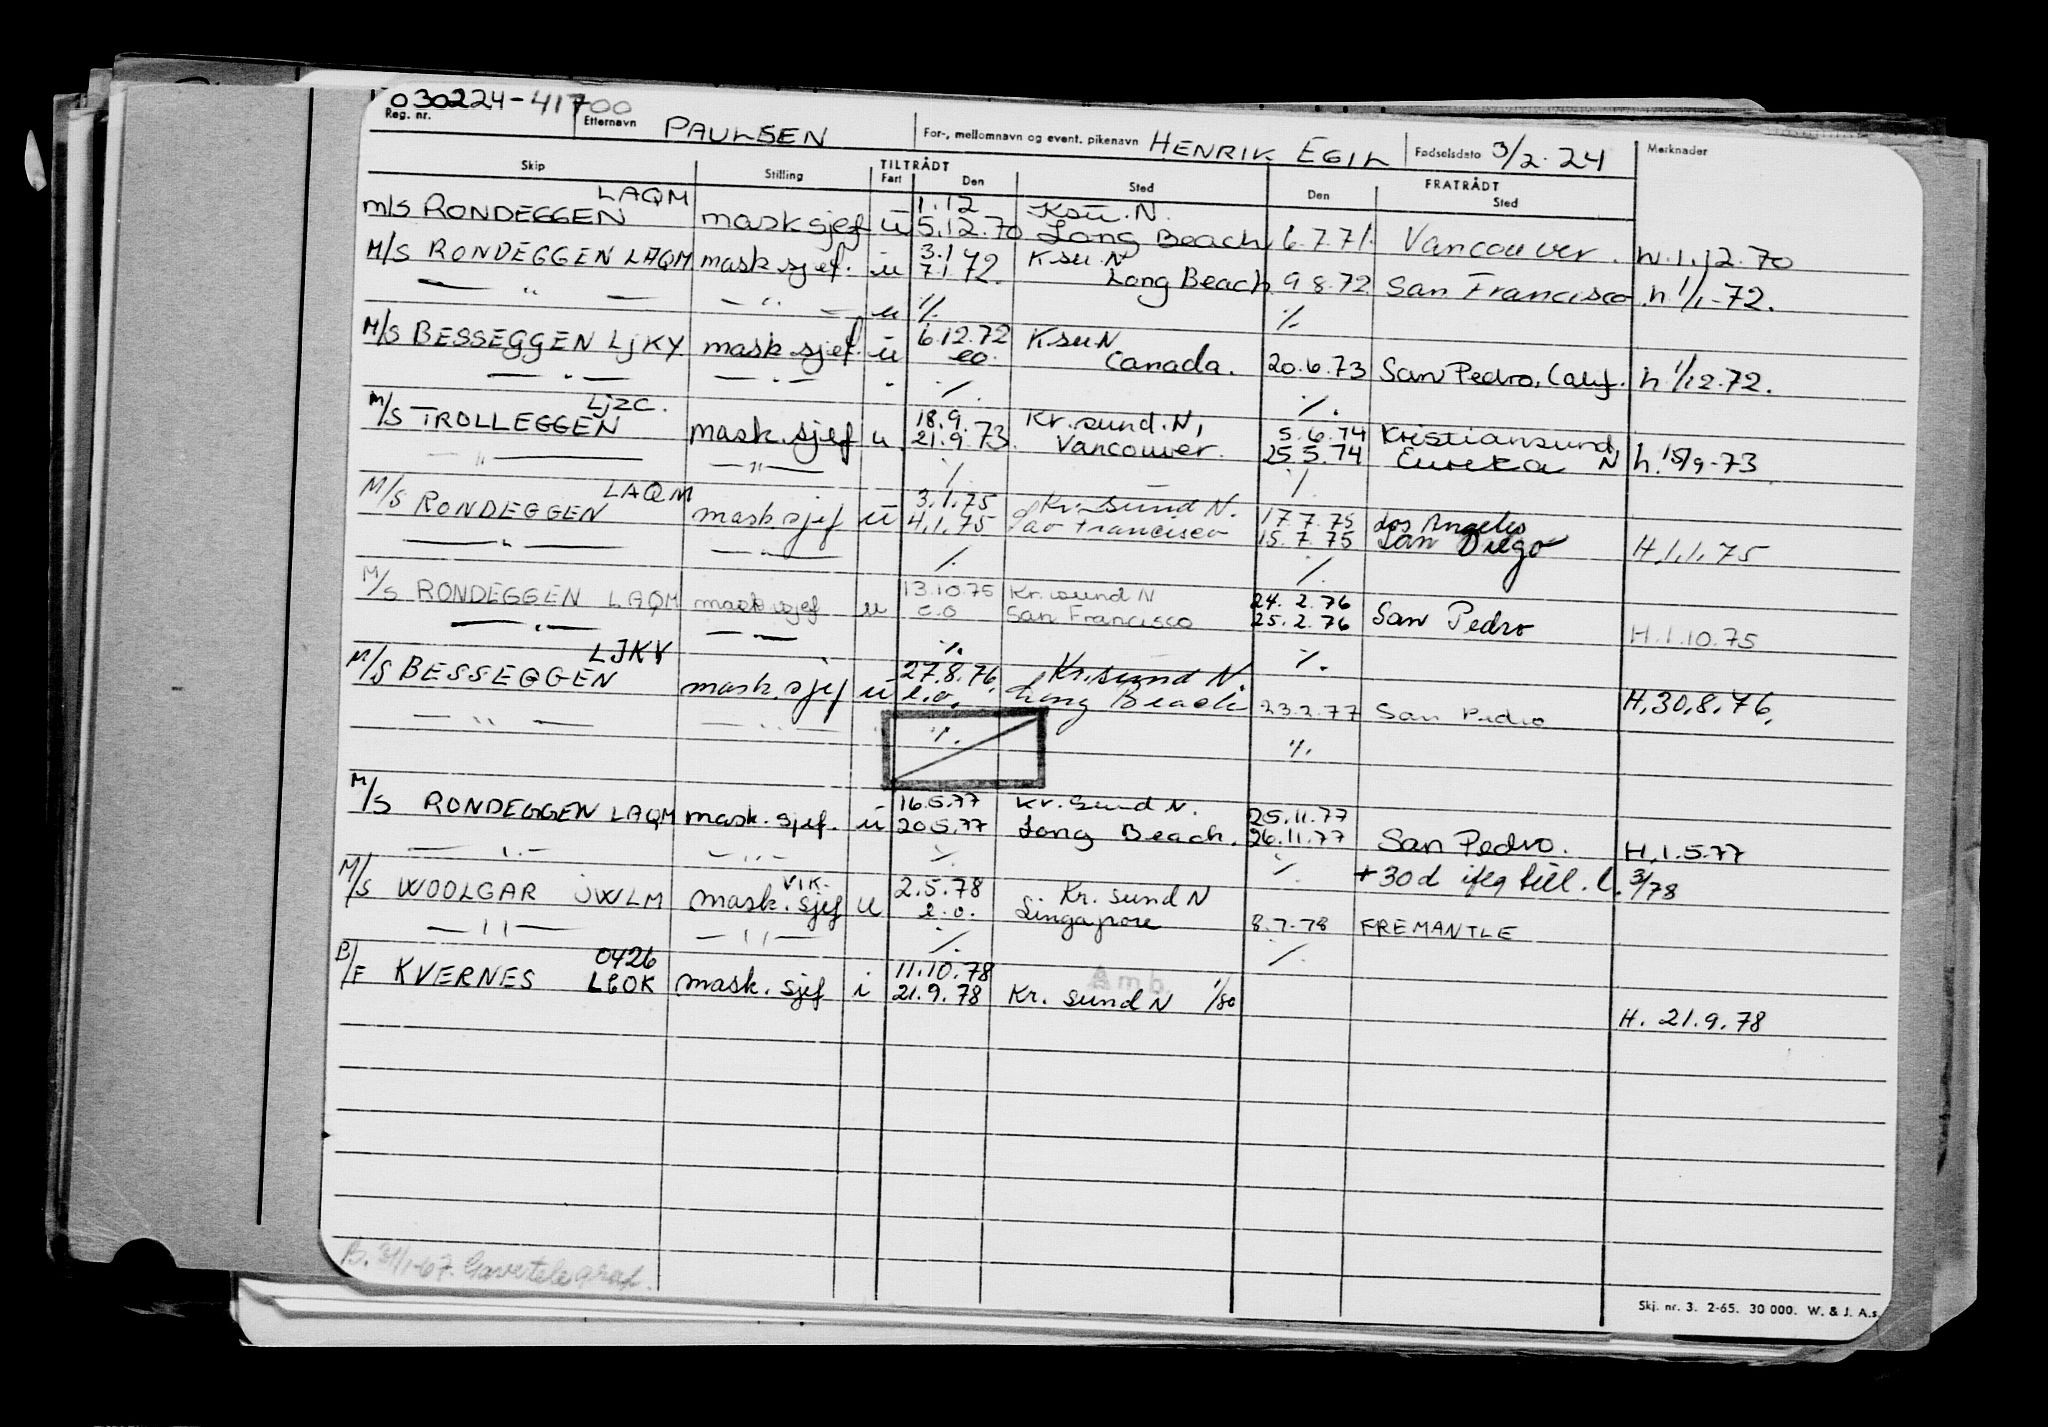 030224-41700
Reg. nr. Etternavn PAULSEN For-, mellomnavn og event. pikenavn HENRIK EGIL Fødselsdato 3/2.24 Merknader
TILTRÅDT FRATRÅDT
Skip Stilling Fart Den Sted Den Sted
LAQM 1.12 Ksu.N.
M/S RONDEGGEN mask sjef u 5.12.70 Long Beach 6.7.71. Vancouver. h.1.12.70
M/S RONDEGGEN LAQM mask sjef. u 3.1 72 Ksu N
7.1 72. Long Beach 9.8.72 San Francisco h 1/1-72.
— " — — " — u ./. ./.
M/S BESSEGGEN LJKY mask sjef. u 6.12.72 Ksu N
eo. Canada. 20.6.73 San Pedro, Calif. h 1/12.72.
— " — — " — " ./. ./.
LJZC. 18.9. Kr.sund.N, 5.6.74 Kristiansund,
M/S TROLLEGGEN mask.sjef u. 21.9.73. Vancouver. 25.5.74 Eureka N h.15/9-73
— " — — " — ./. ./.
LAQM 3.1.75 Kr.sund N. 17.7.75 Los Angeles
M/S RONDEGGEN mask sjef u 4.1.75 San Francisco 15.7.75 San Diego H.1.1.75
— " — — " — ./. ./.
M/S RONDEGGEN LAQM mask sjef u 13.10.75 Kr.sund N 24.2.76
— " — — " — e.o San Francisco 25.2.76 San Pedro H.1.10.75
LJKV ./. ./.
M/S BESSEGGEN mask.sjef u 27.8.76. Kr.sund N.
e.o. Long Beach 23.2.77 San Pedro H.30.8.76.
— " — — " — " ./. ./.
M/S RONDEGGEN LAQM mask.sjef. u 16.5.77 Kr.sund N. 25.11.77
20.5.77 Long Beach. 26.11.77 San Pedro. H.1.5.77
— " — — " — ./. ./. +30d iflg till.l. 3/78
VIK. 2.5.78 Kr.sund N
M/S WOOLGAR JWLM mask.sjef u e.o. Singapore 8.7.78 FREMANTLE
— " — — " — ./. ./.
0426 11.10.78 Amb.
B/F KVERNES LGOK mask.sjef i 21.9.78 Kr. sund N 1/80
H. 21.9.78
B. 31/1-67. Gavetelegraf.
Skj. nr. 3. 2-65. 30 000. W. & J. A.s.